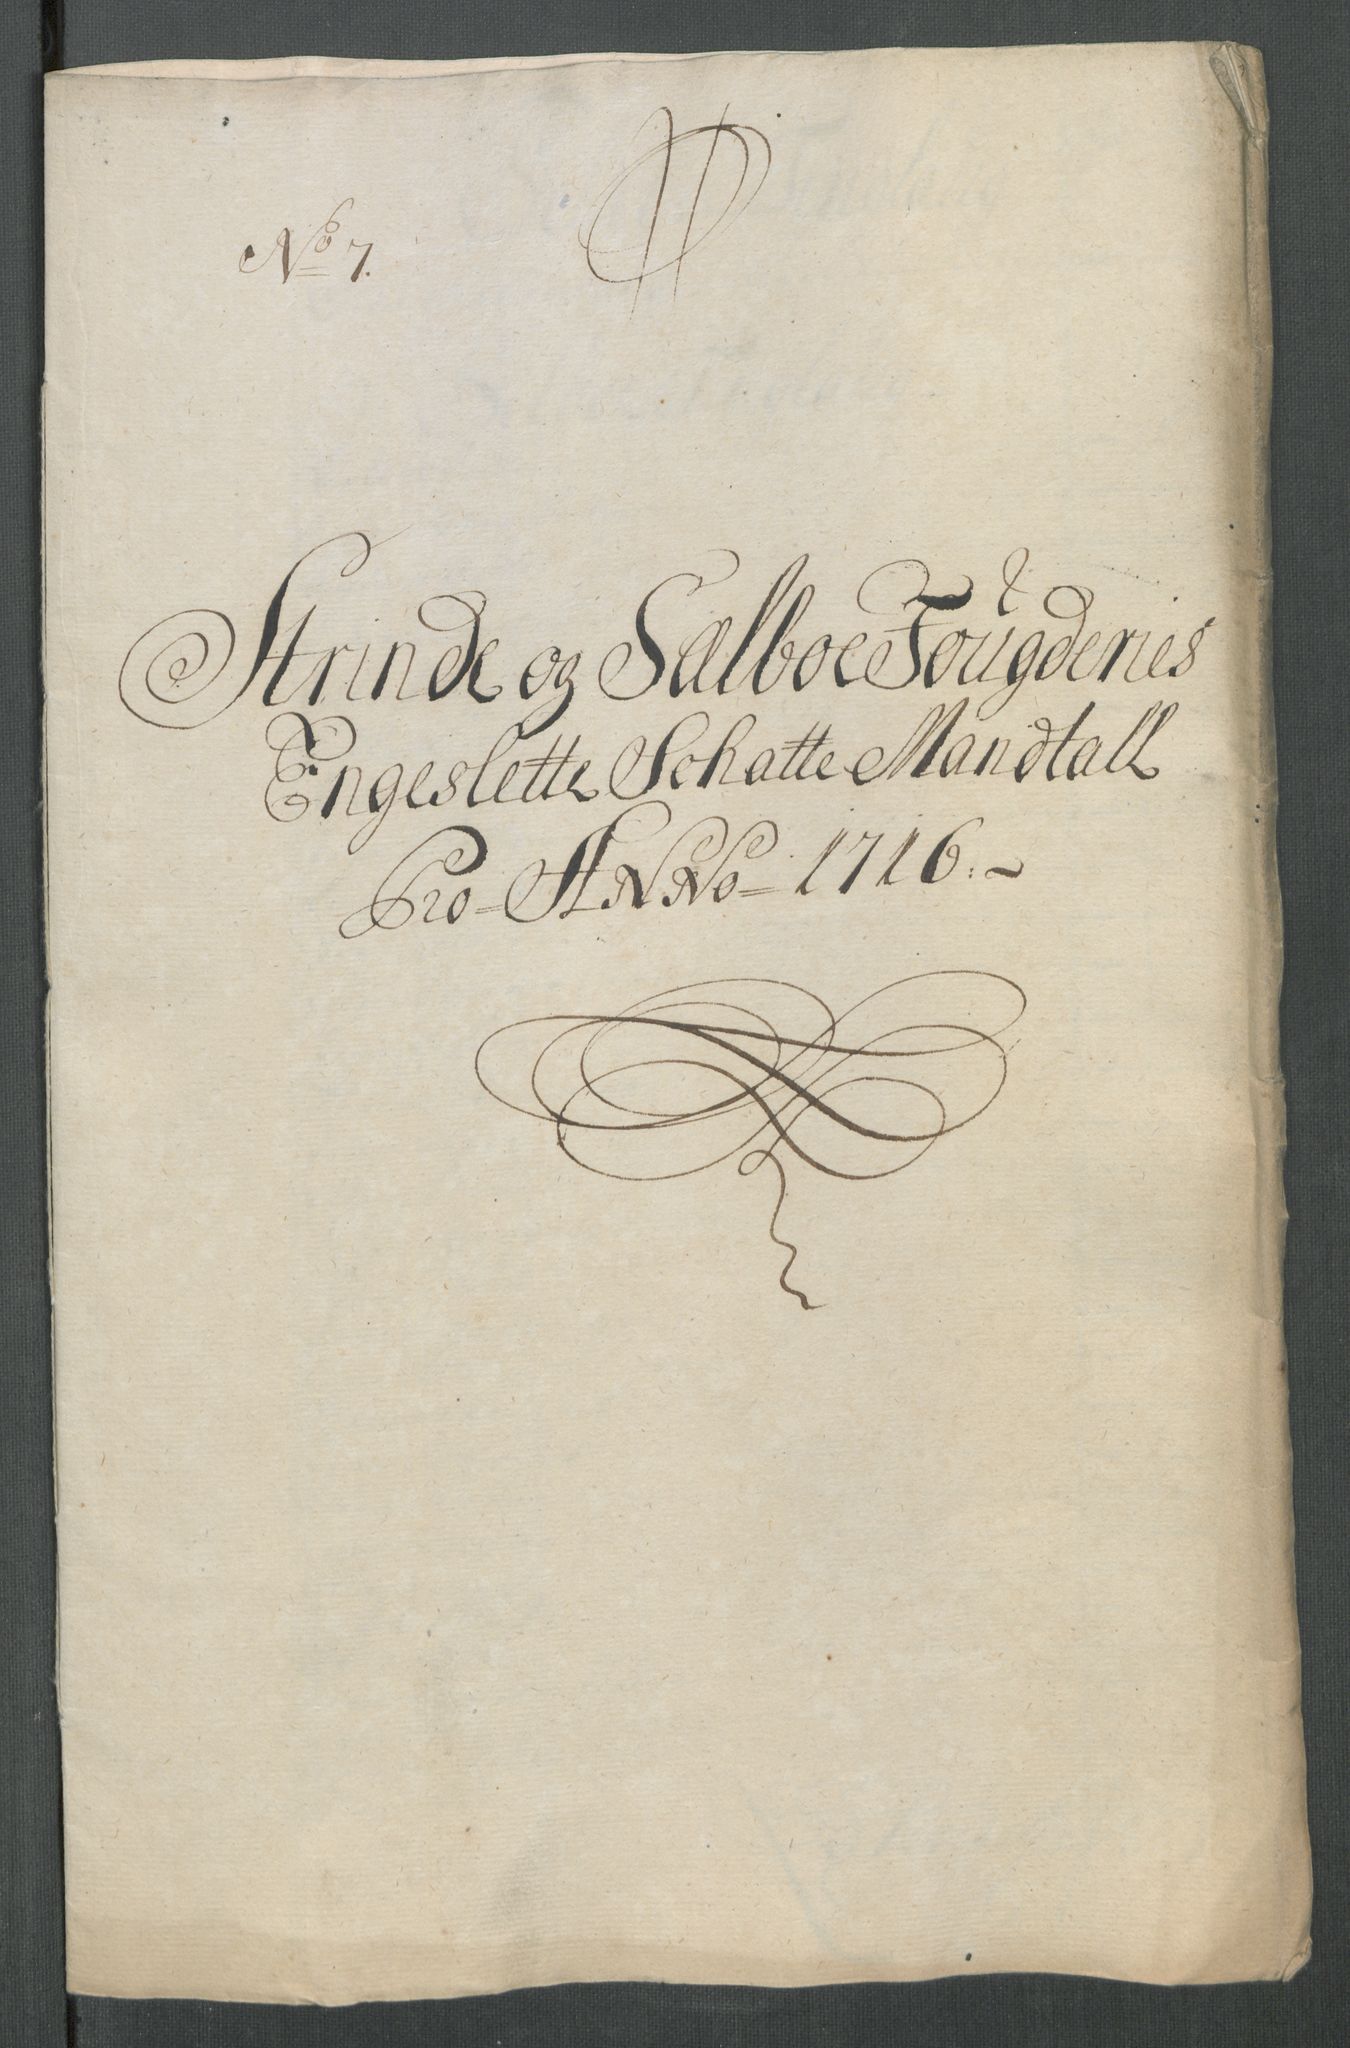 No 7.
Strinde og Sælboe Fougderies
Engeslette Schatte Mandtall
Pro=ANNo=1716:~